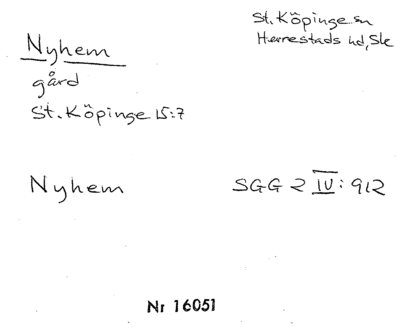 Nyhem
St. Köpinge sn
Herrestads hd, Sk
gård
St. Köpinge 15:7
Nyhem
SGG 2 IV: 912
Nr 16051